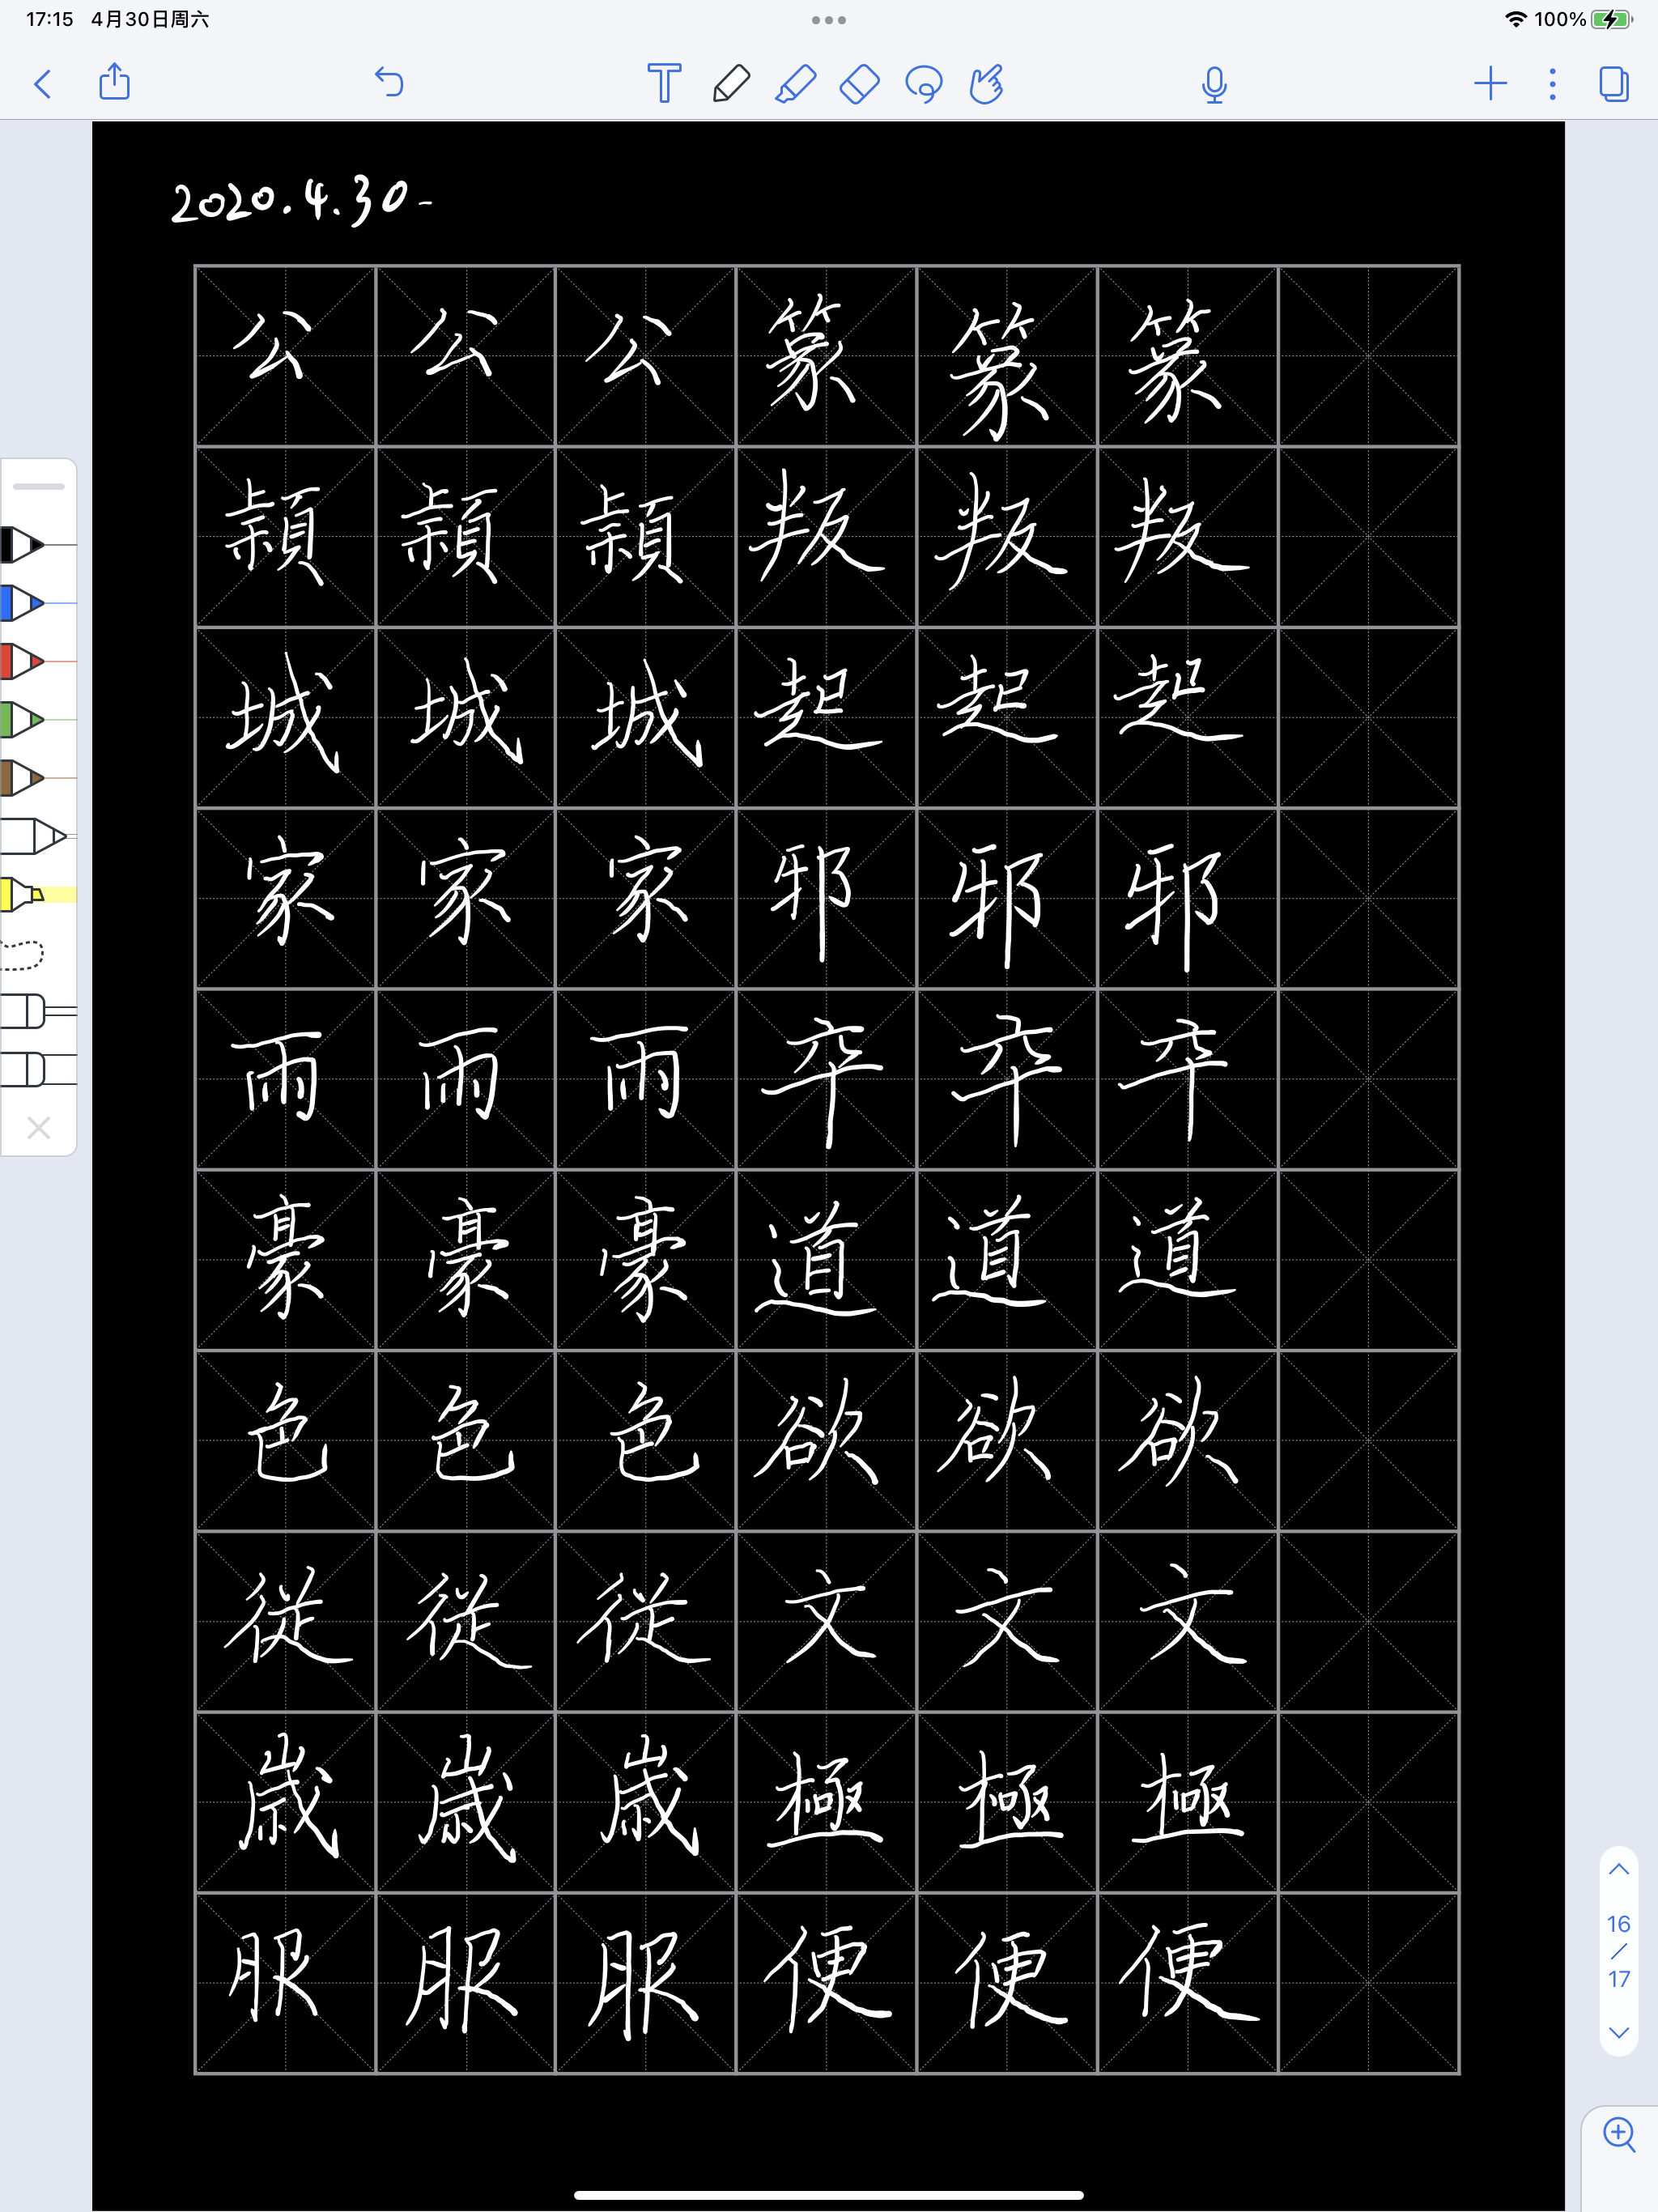 17:15 4月30日周六
100%
2020.4.30-
公 公 公 篆 篆 篆
頴 頴 頴 叛 叛 叛
城 城 城 起 起 起
家 家 家 邪 邪 邪
雨 雨 雨 卒 卒 卒
豪 豪 豪 道 道 道
色 色 色 欲 欲 欲
従 従 従 文 文 文
歳 歳 歳 極 極 極
服 服 服 便 便 便
16
/
17